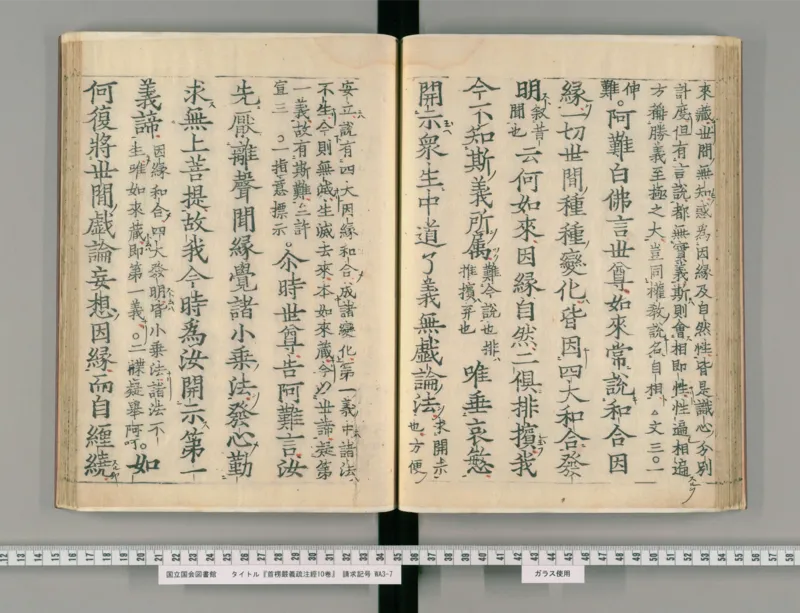 來藏世間無知惑為因緣及自然性皆是識心分別
計度但有言說都無實義斯則會相即性性遍相遍
方稱勝義至極之大豈同權教說名自相△文三○一
伸
難。阿難白佛言世尊如來常說和合因
緣一切世間種種變化皆因四大和合發
明敘昔聞也云何如來因緣自然二俱排擯我
今不知斯義所属難今說也排推擯弃也唯垂哀愍
開示衆生中道了義無戲論法求開示也方便
安立說有四大因緣和合成諸變化第一義中諸法
不生今則無滅生滅去來本如來藏今以世諦疑第
一義故有斯難△三許
宣三○一指意標示。尒時世尊告阿難言汝
先厭離聲聞緣覺諸小乘法發心勤
求無上菩提故我今時為汝開示第一
義諦因緣和合四大發明皆小乘法諸法不生唯如來藏即第一義○二牒疑舉阿呵。如
何復將世間戲論妄想因緣而自纏繞
12 13 14 15 16 17 18 19 20 21 22 23 24 25 26 27 28 29 30 31 32 33 34 35 36 37 38 39 40 41 42 43 44 45 46 47 48 49 50 51 52 53 54 55 56 57 58
国立国会図書館 タイトル『首楞嚴義疏注経10巻』 請求記号 WA3-7
ガラス使用